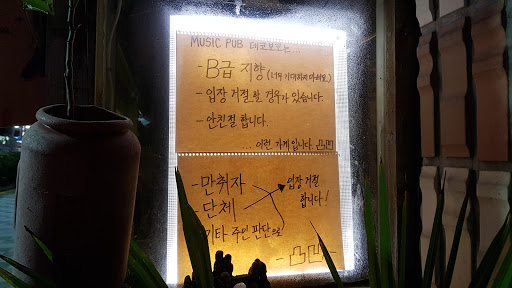 MUSIC PUB 데코보코는...
- B급 지향 (너무 기대하지 마세요.)
- 입장 거절 할 경우가 있습니다.
- 안친절 합니다.
... 이런 가게 입니다. 凸凹
- 만취자
- 단체
- 기타 주인 판단으로
입장 거절
합니다!
- 凸凹